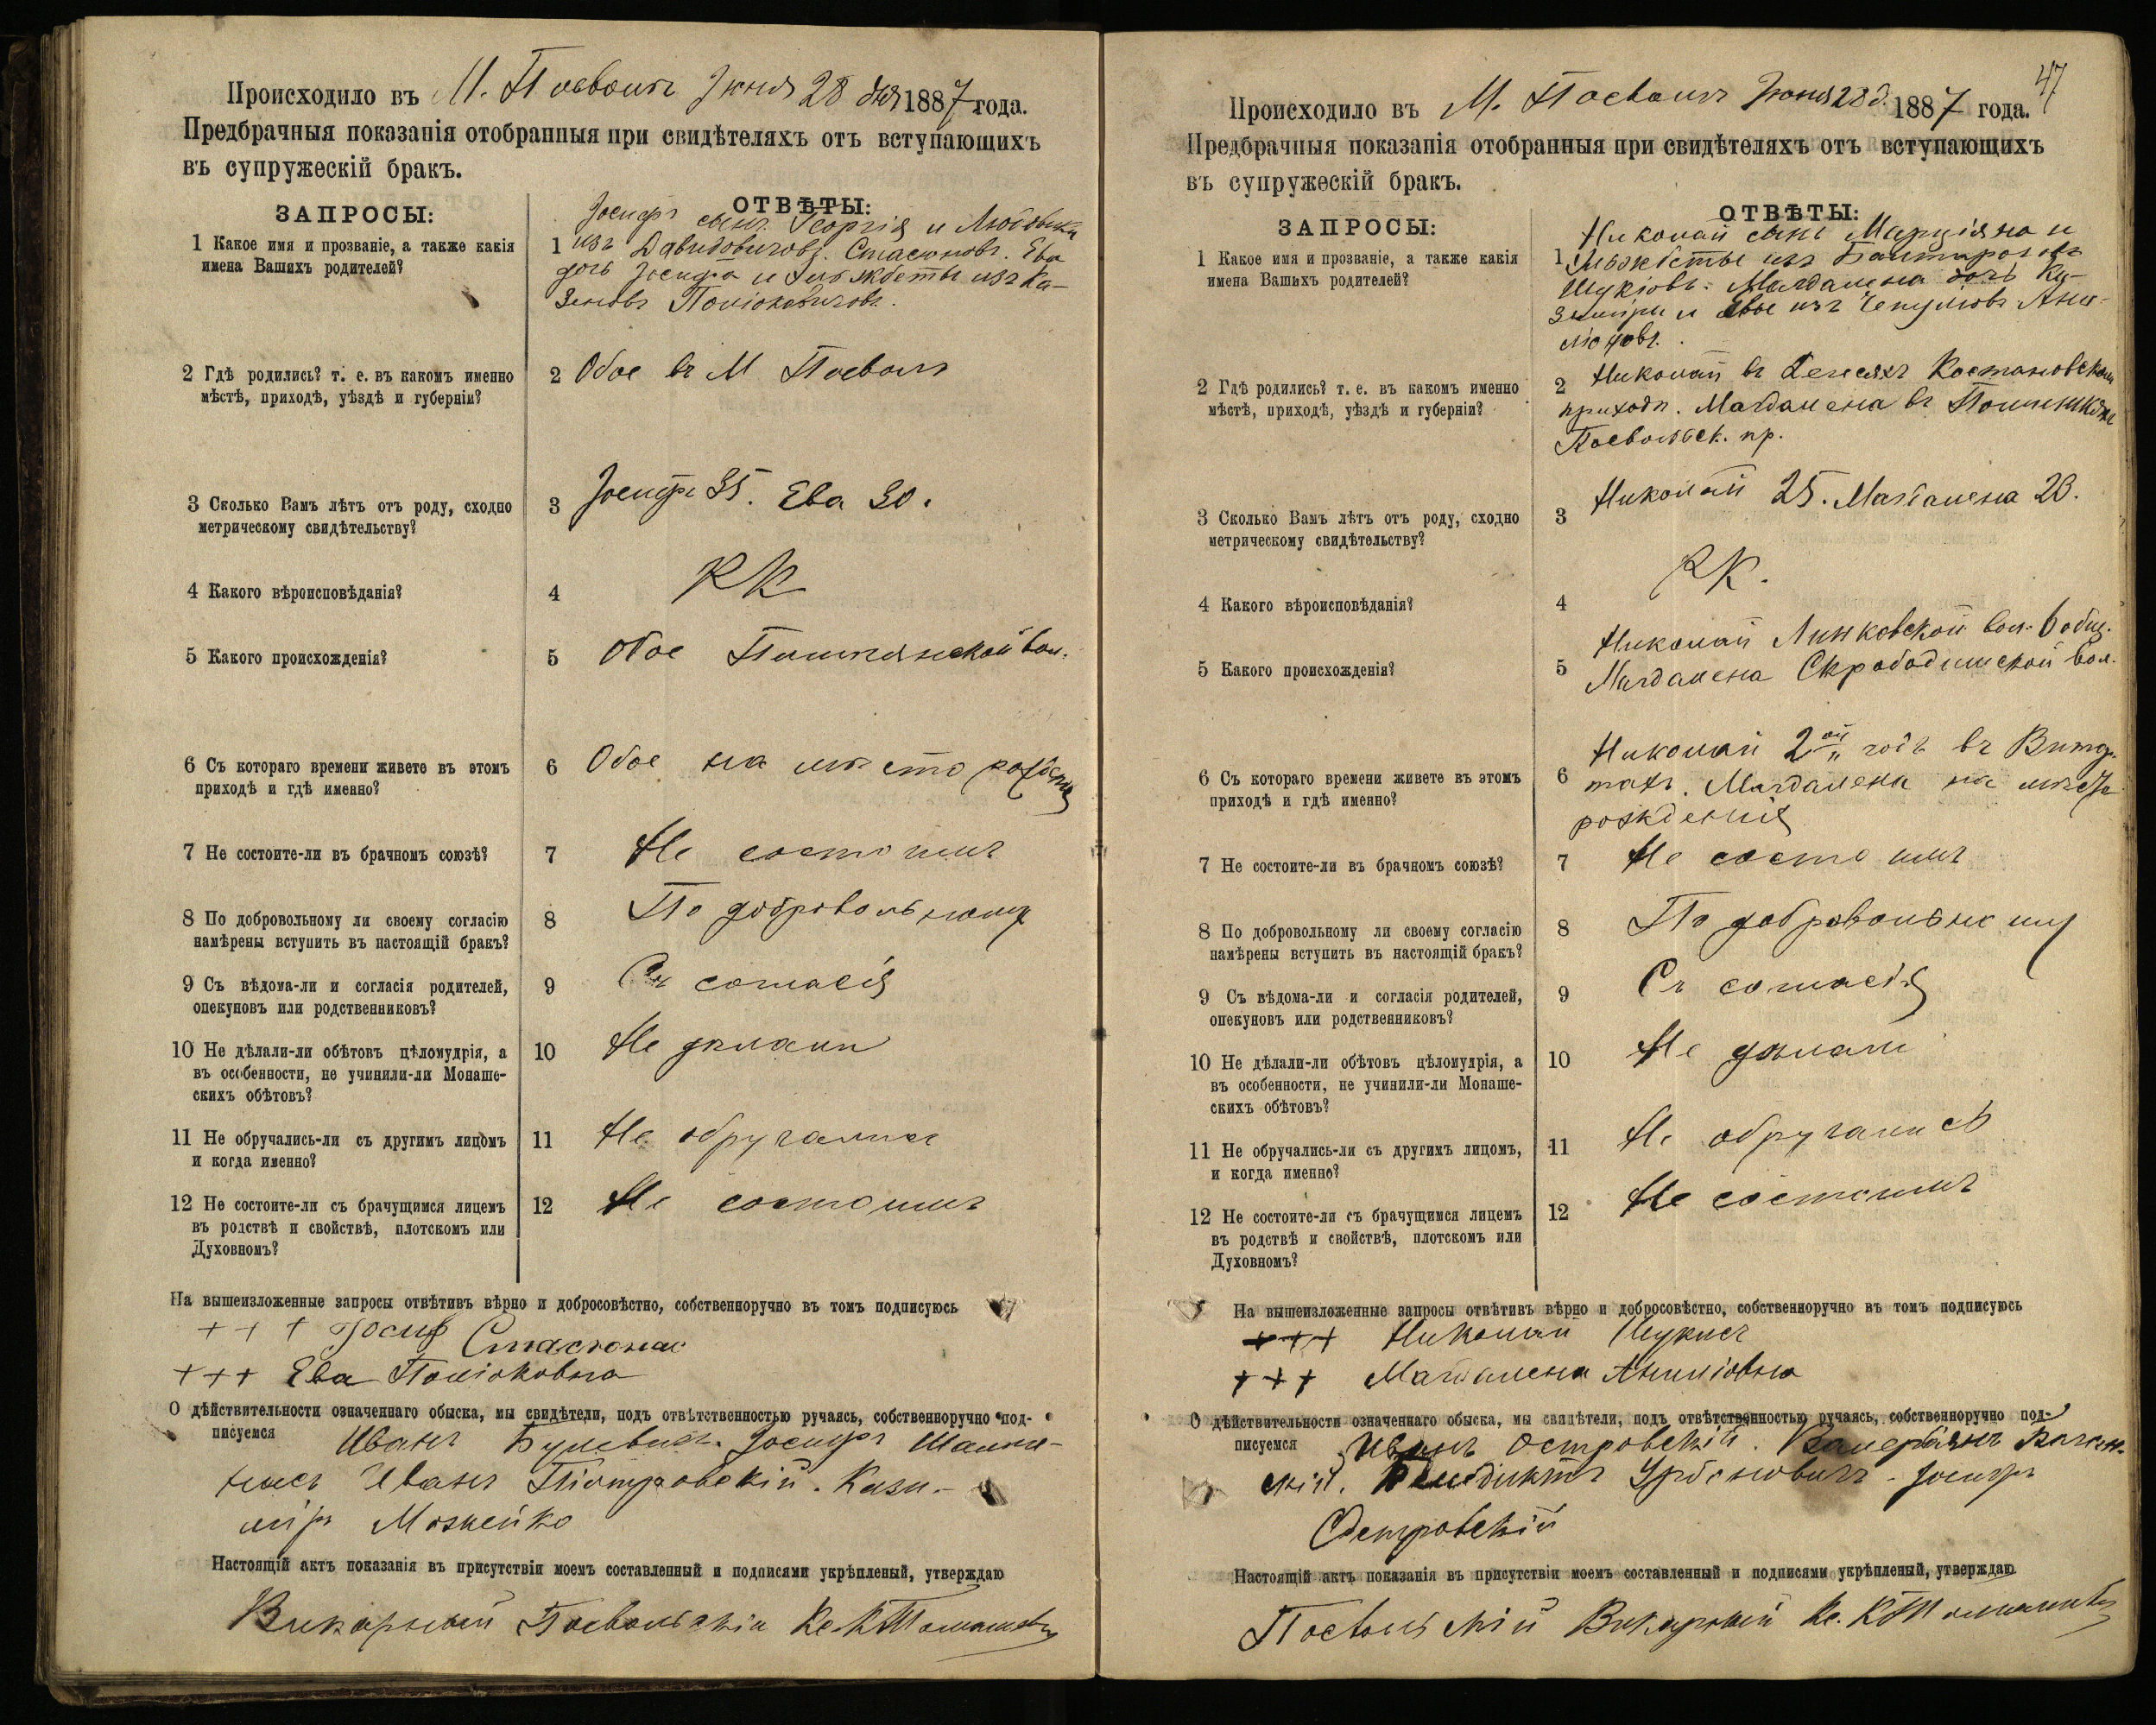 Происходило въ М. Посволѣ Іюня 28 дня 1887 года.
Предбрачныя показанія отобранныя при свидѣтеляхъ отъ вступающихъ
въ супружескій бракъ.
ЗАПРОСЫ:
ОТВѢТЫ:
1 Какое имя и прозваніе, а также какія
имена Вашихъ родителей?
1 Іосифъ сынъ Георгія и Людовики
изъ Давидовичовъ Стасюновъ. Ева
дочь Іосифа и Эльжбеты изъ Ка-
2 Гдѣ родились? т. е. въ какомъ именно
мѣстѣ, приходѣ, уѣздѣ и губерніи?
2 Обое въ М Посволѣ
3 Сколько Вамъ лѣтъ отъ роду, сходно
метрическому свидѣтельству?
3 Іосифъ 35. Ева 30.
4 Какого вѣроисповѣданія?
4 РК
5 Какого происхожденія?
5 Обое вол.
6 Съ котораго времени живете въ этомъ
приходѣ и гдѣ именно?
6 Обое на мѣстѣ рожденія
7 Не состоите-ли въ брачномъ союзѣ?
7 Не состоимъ
8 По добровольному ли своему согласію
намѣрены вступить въ настоящій бракъ?
8 По добровольному
9 Съ вѣдома-ли и согласія родителей,
опекуновъ или родственниковъ?
9 Съ согласія
10 Не дѣлали-ли обѣтовъ цѣломудрія, а
въ особенности, не учинили-ли Монаше-
скихъ обѣтовъ?
10 Не дѣлали
11 Не обручались-ли съ другимъ лицомъ
и когда именно?
11 Не обручались
12 Не состоите-ли съ брачущимся лицемъ
въ родствѣ и свойствѣ, плотскомъ или
Духовномъ?
12 Не состоимъ
На вышеизложенные запросы отвѣтивъ вѣрно и добросовѣстно, собственноручно въ томъ подписуюсь
+ + + Іосиф Стасюнас
+ + + Ева
О дѣйствительности означеннаго обыска, мы свидѣтели, подъ отвѣтственностью ручаясь, собственноручно под-
писуемся Иванъ Іосифъ
Иванъ Піотровскій. Кази-
міръ Можейко
Настоящій актъ показанія въ присутствіи моемъ составленный и подписями укрѣпленый, утверждаю
Викарный Посвольскій Кс.
47
Происходило въ М. Посволѣ Іюня 28 д. 1887 года.
Предбрачныя показанія отобранныя при свидѣтеляхъ отъ вступающихъ
въ супружескій бракъ.
ЗАПРОСЫ:
ОТВѢТЫ:
1 Какое имя и прозваніе, а также какія
имена Вашихъ родителей?
1 Николай сынъ Марціяна и
Эльжбеты изъ
Шукіовъ. Магдалена дочь Ка-
зиміра и Евы изъ
2 Гдѣ родились? т. е. въ какомъ именно
мѣстѣ, приходѣ, уѣздѣ и губерніи?
2 Николай въ
прихода. Магдалена въ
Посвольск. пр.
3 Сколько Вамъ лѣтъ отъ роду, сходно
метрическому свидѣтельству?
3 Николай 25. Магдалена 23.
4 Какого вѣроисповѣданія?
4 РК.
5 Какого происхожденія?
5 Николай Линковской вол. общ.
Магдалена вол.
6 Съ котораго времени живете въ этомъ
приходѣ и гдѣ именно?
6 Николай 2ой годъ въ
Магдалена на мѣстѣ
рожденія
7 Не состоите-ли въ брачномъ союзѣ?
7 Не состоимъ
8 По добровольному ли своему согласію
намѣрены вступить въ настоящій бракъ?
8 По добровольному
9 Съ вѣдома-ли и согласія родителей,
опекуновъ или родственниковъ?
9 Съ согласія
10 Не дѣлали-ли обѣтовъ цѣломудрія, а
въ особенности, не учинили-ли Монаше-
скихъ обѣтовъ?
10 Не дѣлали
11 Не обручались-ли съ другихъ лицомъ,
и когда именно?
11 Не обручались
12 Не состоите-ли съ брачущимся лицемъ
въ родствѣ и свойствѣ, плотскомъ или
Духовномъ?
12 Не состоимъ
На вышеизложенные запросы отвѣтивъ вѣрно и добросовѣстно, собственноручно въ томъ подписуюсь
+ + + Николай Шукисъ
+ + + Магдалена
О дѣйствительности означеннаго обыска, мы свидѣтели, подъ отвѣтственностью ручаясь, собственноручно под-
писуемся Иванъ Островскій. Валеріянъ
Бенедиктъ Урбоновичъ. Іосифъ
Островскій
Настоящій актъ показанія въ присутствіи моемъ составленный и подписями укрѣпленый, утверждаю
Посвольскій Викарный Кс.